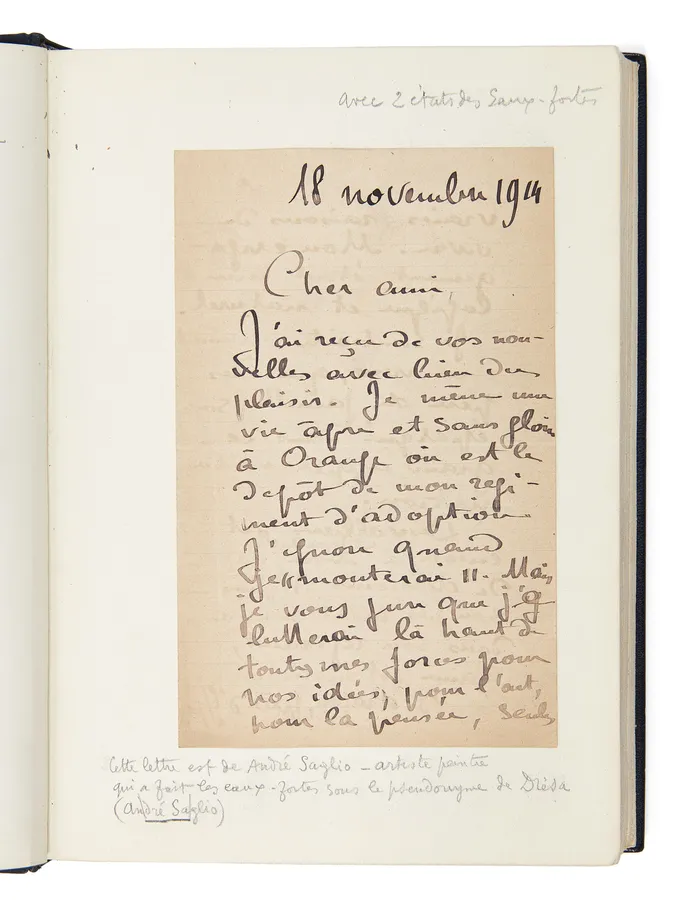 avec 2 états des Eaux-fortes
18 novembre 1914
Cher ami,
J'ai reçu de vos nou-
velles avec bien du
plaisir. Je mène une
vie âpre et sans gloire
à Orange où est le
depôt de mon régi-
ment d'adoption.
J'ignore quand
je "monterai". Mais
je vous jure que j'y
lutterai là haut de
toutes mes forces pour
nos idées, pour l'art,
pour la pensée, seules
Cette lettre est de André Saglio - artiste peintre
qui a fait les eaux-fortes sous le pseudonyme de Drésa
(André Saglio)